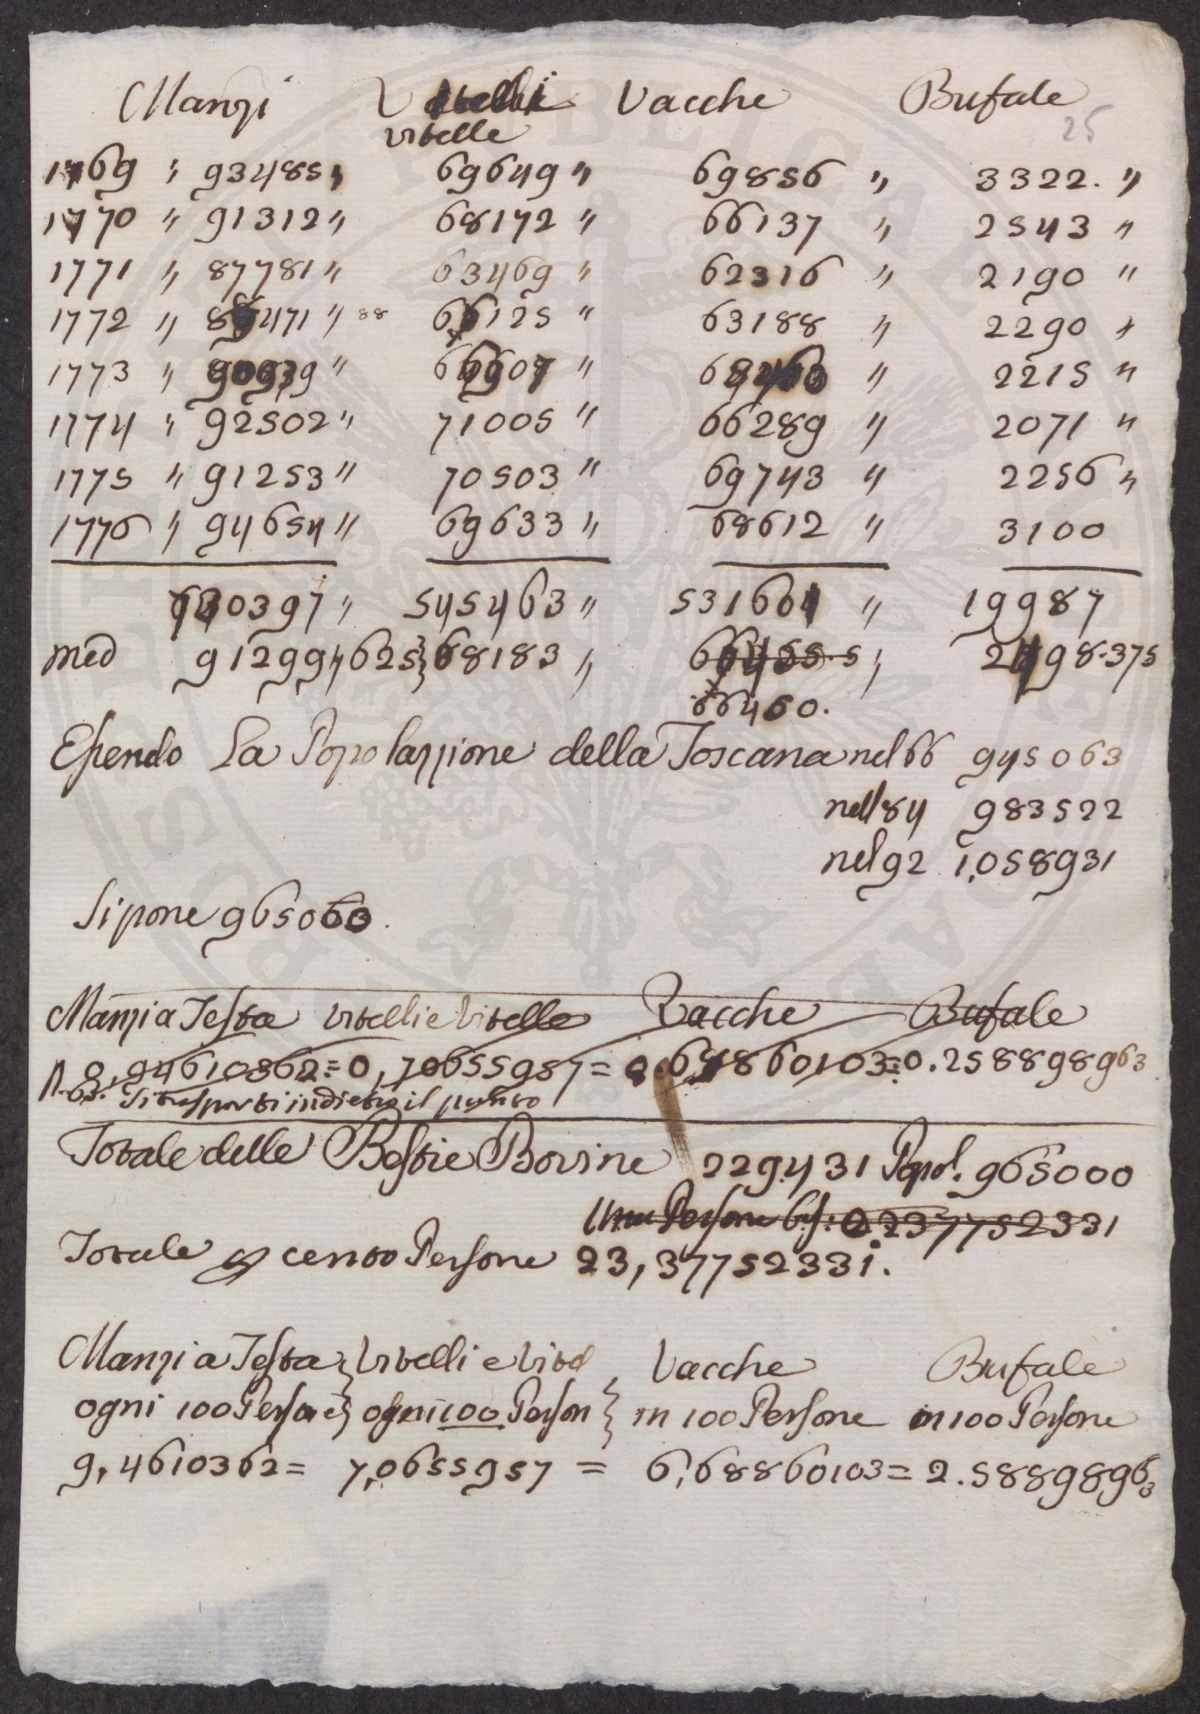 Manzi Vitelli Vacche Bufale
vitelle
25
1769 " 93485 " 69649 " 69856 " 3322. "
1770 " 91312 " 68172 " 66137 " 2543 "
1771 " 87781 " 63469 " 62316 " 2190 "
1772 " 89471 " 88 66125 " 63188 " 2290 "
1773 " 90939 " 66907 " " 2215 "
1774 " 92502 " 71005 " 66289 " 2071 "
1775 " 91253 " 70503 " 69743 " 2256 "
1776 " 94654 " 69633 " 68612 " 3100
730397 " 545463 " 531601 " 19987
med 91299,625} 68183 " 66455.5, 2498.375
66450.
Essendo La Popolazzione della Toscana nel 66 945063
nell 84 983522
nel 92 1,058931
Si pone 965060.
Manzi a Testa Vitelli e Vitelle Vacche Bufale
0,94610362=0,70655957=0.68860103=0.2588898963
N.B. Si trasporti indietro il punto
Totale delle Bestie Bovine 229431 Popol. 965000
0.2377752331
Totale p cento Persone 23,37752331.
Manzi a Testa} Vitelli e Vitel, Vacche Bufale
ogni 100 Persone} ogni 100 Person} in 100 Persone in 100 Persone
9,4610362= 7,0655957 = 6,68860103= 2.588898963